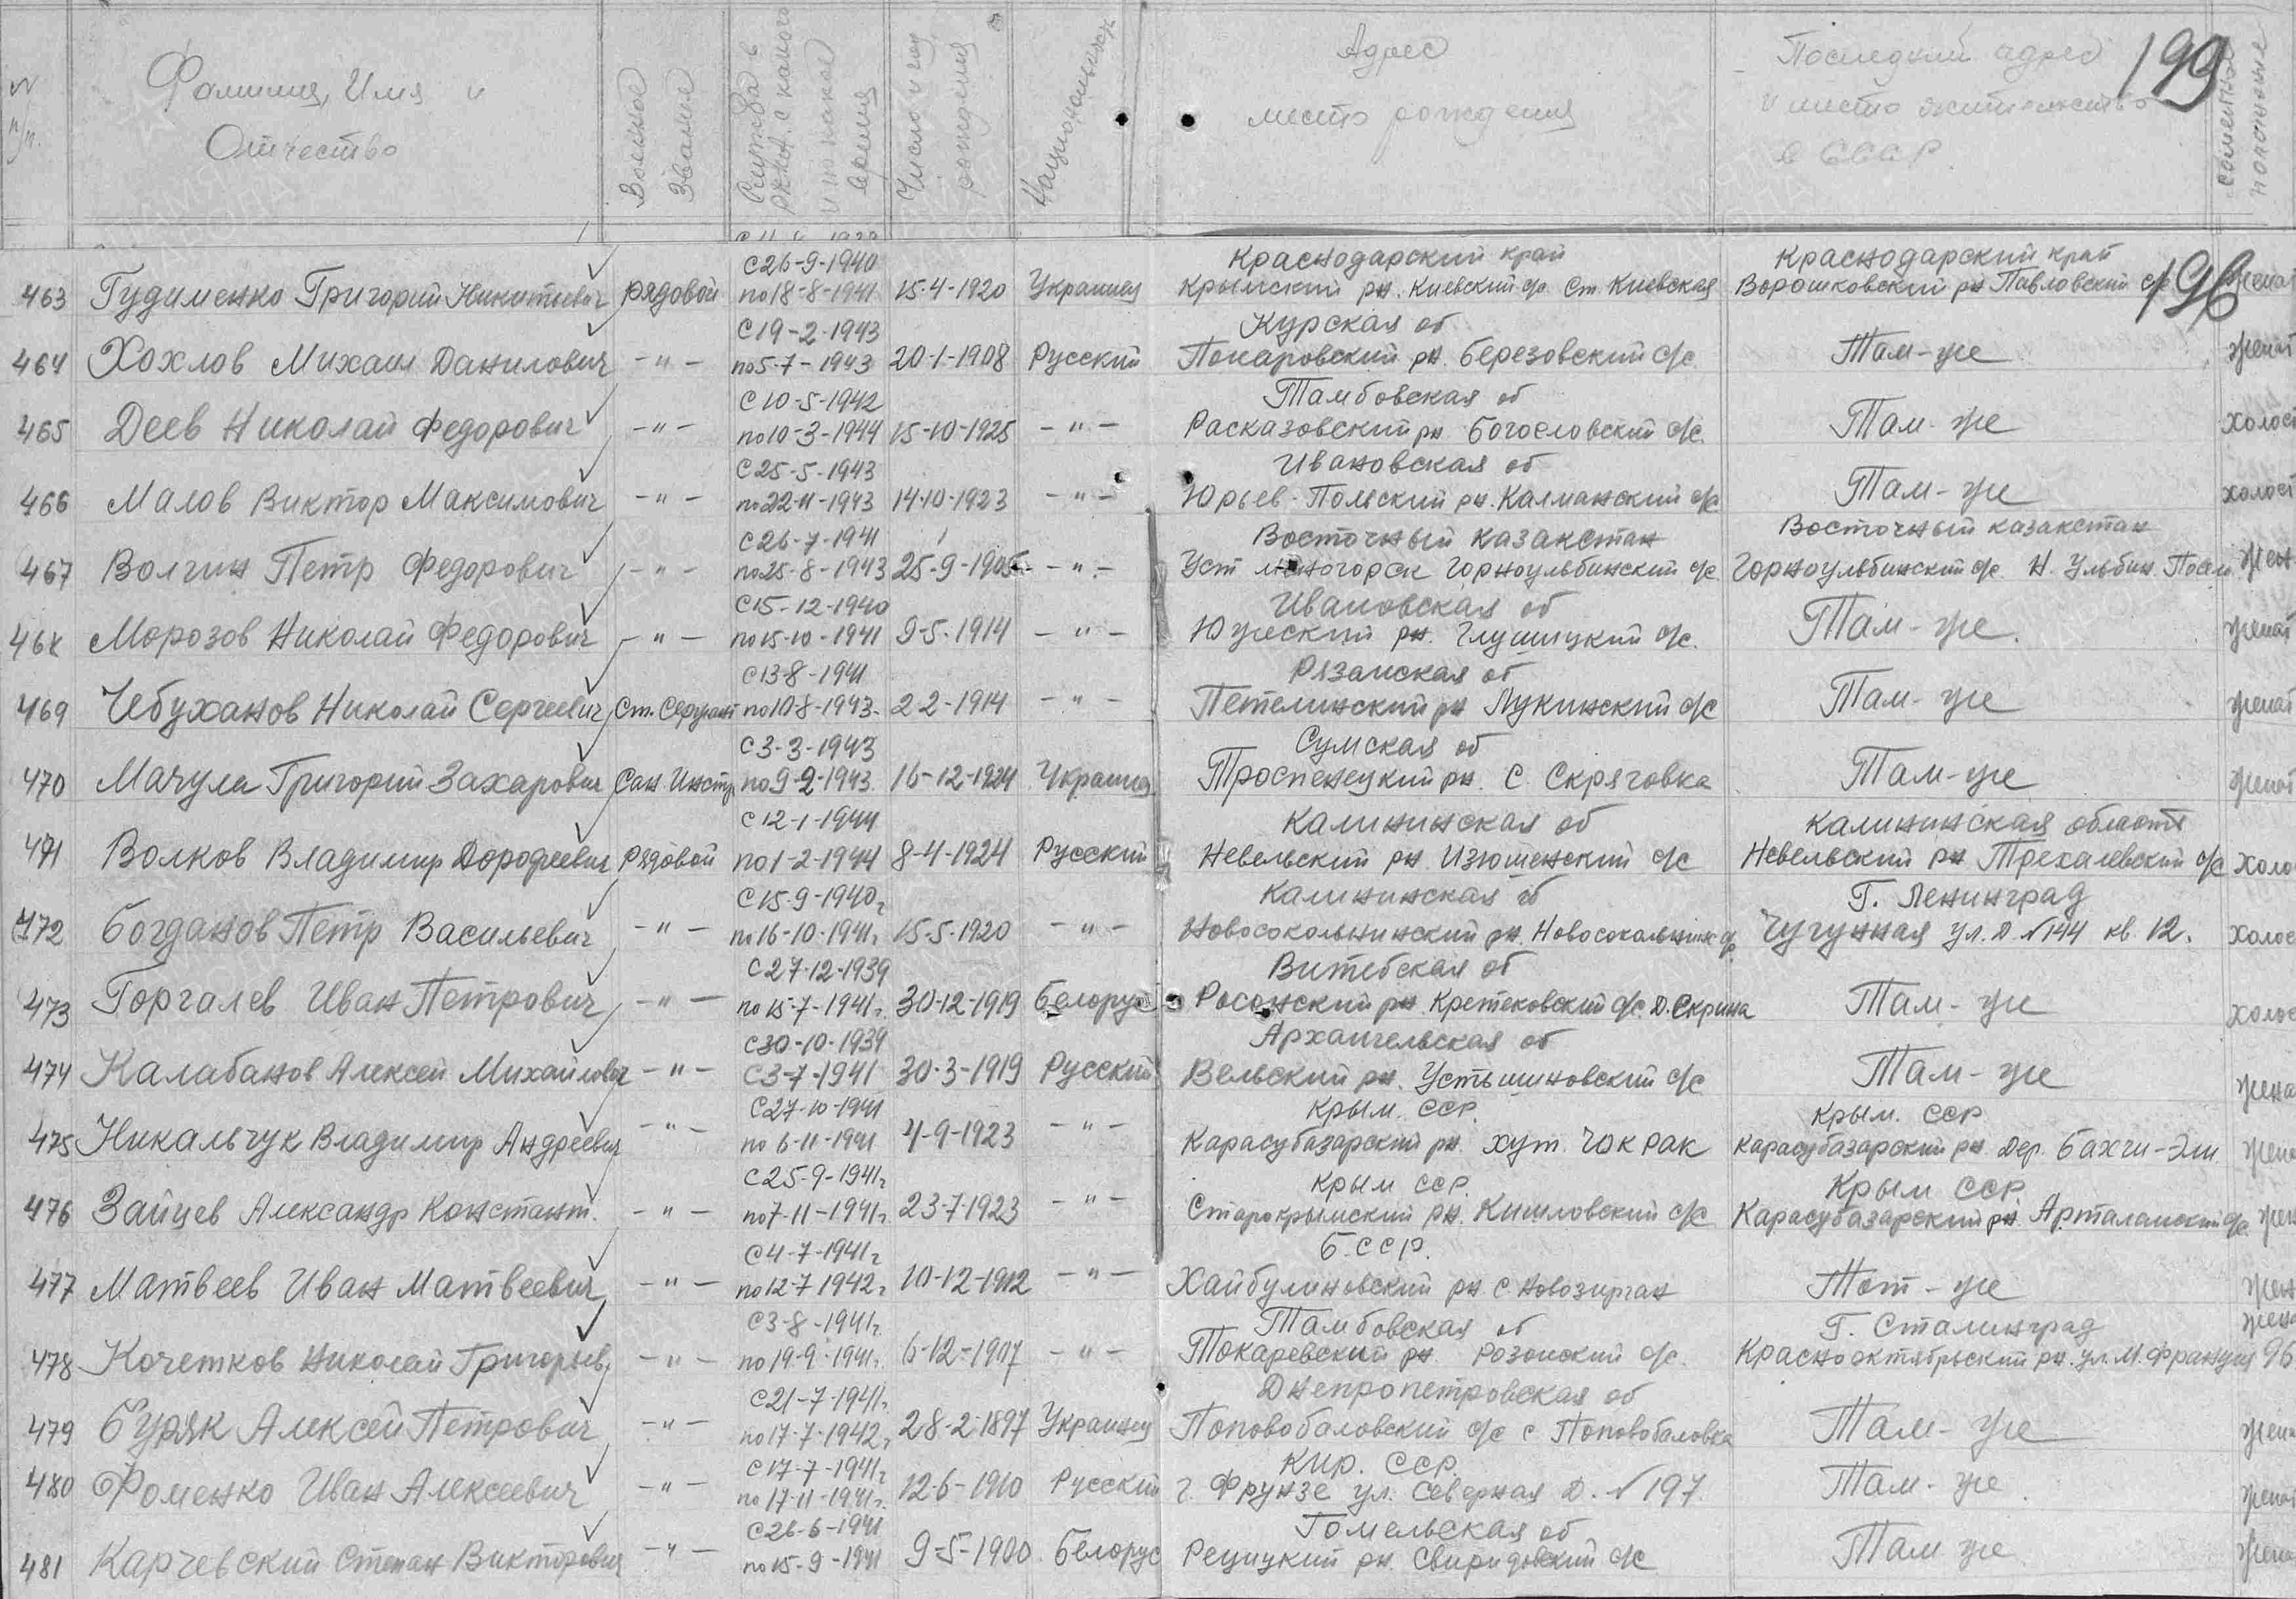 N п/п.
Фамилия, Имя и
Отчество
Военное
Звание
Служба в
РККА. с какого
и по какое
время
Число и год
рождения
Национальность
Адрес
место рождения
Последний адрес
и место жительство
в СССР.
семейное
положение
199
196
с 26-9-1940
Краснодарский край
Краснодарский край
463 Гудименко Григорий Никитьевич рядовой по 18-8-1941 15-4-1920 Украинец Крымский рн. Киевский с/с Ст. Киевская Ворошковский рн Павловский с/с женат
с 19-2-1943
Курская об
464 Хохлов Михаил Данилович -"- по 5-7-1943 20-1-1908 Русский Покаровский рн. Березовский с/с. Там-же женат
с 10-5-1942
Тамбовская об
465 Деев Николай Федорович -"- по 10-3-1944 15-10-1925 -"- Расказовский рн. Богословский с/с. Там-же холост
с 25-5-1943
Ивановская об
466 Малов Виктор Максимович -"- по 22-11-1943 14-10-1923 -"- Юрьев-Польский рн. Калманский с/с Там-же холост
с 26-7-1941
Восточный казакстан
Восточный казакстан
467 Волгин Петр Федорович -"- по 25-8-1943 25-9-1905 -"- Уст Горноульбинский с/с Горноульбинский с/с Н. Ульбин. Жен.
с 15-12-1940
Ивановская об
468 Морозов Николай Федорович -"- по 15-10-1941 9-5-1914 -"- Южский рн. Глушицкий с/с. Там-же. женат
с 13-8-1941
Рязанская об
469 Чебуханов Николай Сергеевич Ст. Сержант по 10-8-1943. 2-2-1914 -"- Петелинский рн Лукинский с/с Там-же женат
с 3-3-1943
Сумская об
470 Мачула Григорий Захарович Сан. Инстр по 9-9-1943. 16-12-1924 Украинец Тростенецкий рн. С. Скряговка Там-же женат
с 12-1-1944
Калининская об
Калининская область
471 Волков Владимир Дорофеевич Рядовой по 1-2-1944 8-4-1924 Русский Невельский рн. Изюшенский с/с Невельский рн Трехалевский с/с холо
с 15-9-1940г
Калининская об
Г. Ленинград
472 Богданов Петр Васильевич -"- по 16-10-1941г 15-5-1920 -"- Новосокольнинский рн. Чугунная ул. д. №144 кв. 12. холос
с 27-12-1939
Витебская об
473 Горгалев Иван Петрович -"- по 15-7-1941г. 30-12-1919 Белорус Росонский рн. Кретековский с/с. Д. Скрина Там-же холос
с 30-10-1939
Архангельская об
474 Калабанов Алексей Михайлович -"- с 3-7-1941 30-3-1919 Русский Вельский рн. Устьшиновский с/с Там-же жена
с 27-10-1941
крым. ССР.
крым. ССР
475 Никальчук Владимир Андреевич -"- по 6-11-1941 4-9-1923 -"- Карасубазарский рн. хут. Чокрак Карасубазарский рн. Дер. Бахчи-Эли жена
с 25-9-1941г
крым ССР.
Крым ССР
476 Зайцев Александр Констант. -"- по 7-11-1941г. 23-7-1923 -"- Старокрымский рн. Кишловский с/с Карасубазарский рн. Арталанский с/с. жен
с 4-7-1941г
Б.ССР.
477 Матвеев Иван Матвеевич -"- по 12-7 1942г 10-12-1912 -"- Хайбулиновский рн. с Новозирган Тот-же жен
с 3-8-1941г.
Тамбовская об
Г. Сталинград
жена
478 Кочетков Николай Григорьев. -"- по 19-9-1941г. 6-12-1907 -"- Токаревский рн. Розонский с/с. Краснооктябрьский рн. ул. М. Франция 96
с 21-7-1941г.
Днепропетровская об
479 Буряк Алексей Петрович -"- по 17-7-1942г 28-2-1897 Украинец Поповобаловский с/с с Поповобаловка Там-же жена
с 17-7-1941г
Кир. ССР.
480 Фоменко Иван Алексеевич -"- по 17-11-1941г. 12-6-1910 Русский г. Фрунзе ул. Северная Д. №197. Там-же. женат
с 26-6-1941
Гомельская об
481 Карчевский Степан Викторович -"- по 15-9-1941 9-5-1900. Белорус Речицкий рн. Свиридовский с/с Там же жена